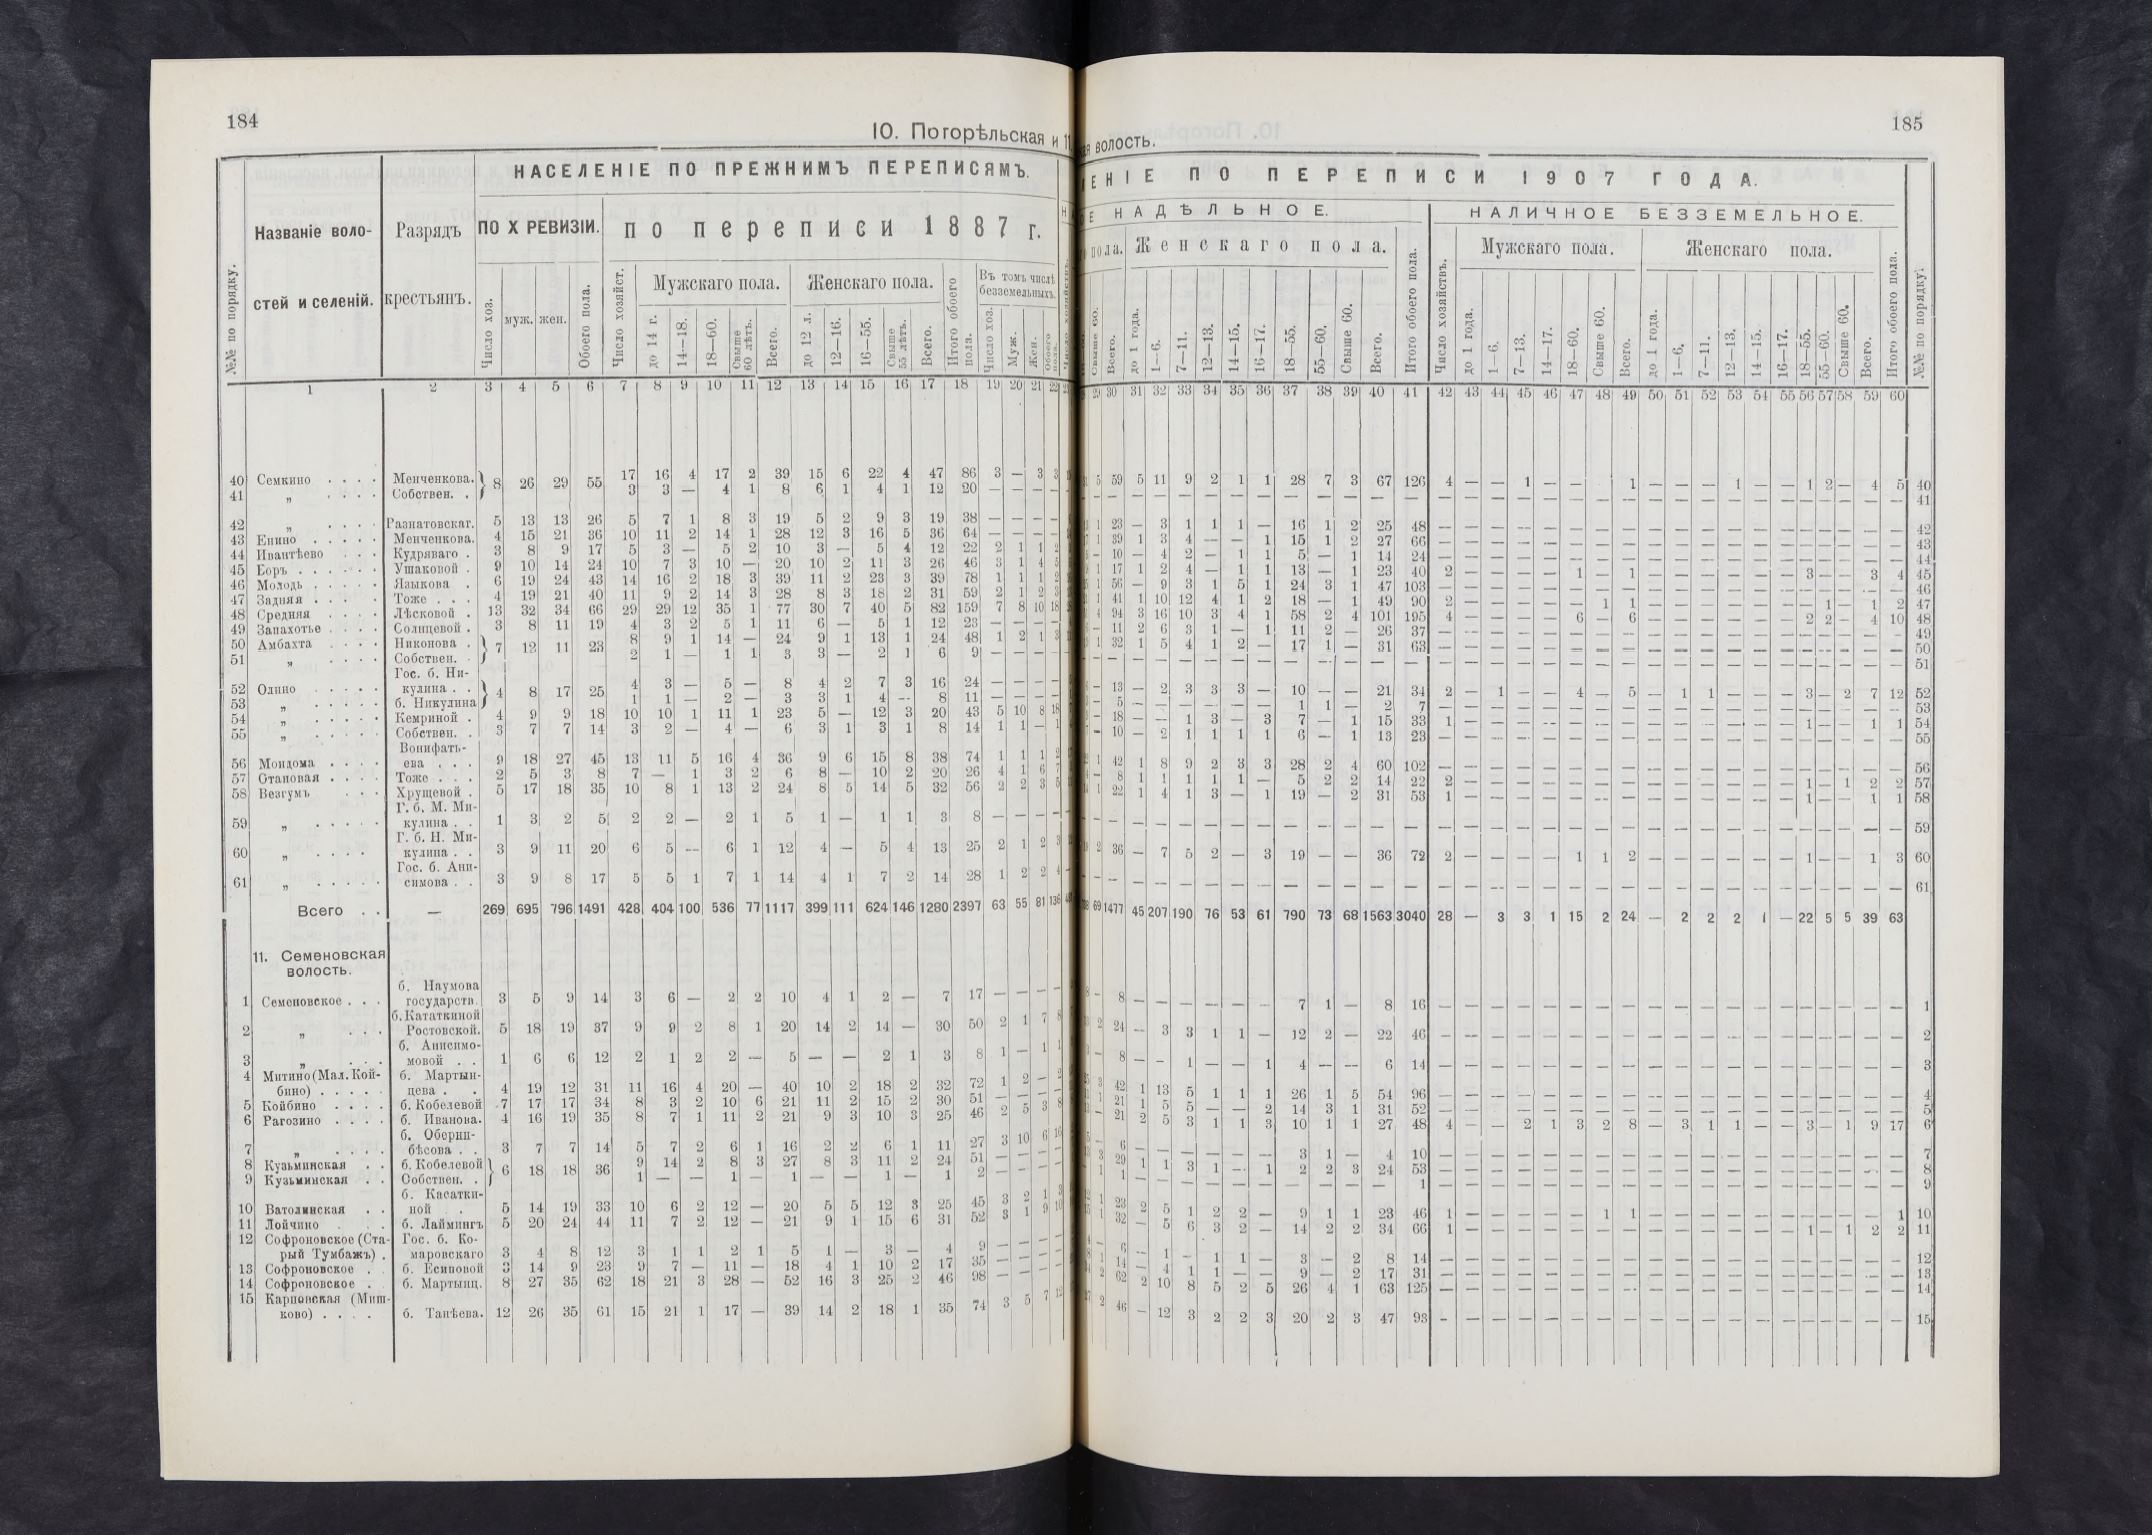 184
10. Погорѣльская и 11
№№ по порядку.
Названіе воло-
стей и селеній.
Разрядъ
крестьянъ.
НАСЕЛЕНІЕ ПО ПРЕЖНИМЪ ПЕРЕПИСЯМЪ.
ПО X РЕВИЗІИ.
по переписи 1887 г.
Число хоз.
муж. жен.
Обоего пола.
Число хозяйст.
Мужскаго пола.
до 14 г. 14—18. 18—60. Свыше 60 лѣтъ. Всего.
Женскаго пола.
до 12 л. 12—16. 16—55. Свыше 55 лѣтъ. Всего.
Итого обоего пола.
Въ томъ числѣ
безземельныхъ.
Число хоз. Муж. Жен. Обоего пола.
1 2 3 4 5 6 7 8 9 10 11 12 13 14 15 16 17 18 19 20 21 22
40 Семкино . . . . Менченкова. 8 26 29 55 17 16 4 17 2 39 15 6 22 4 47 86 3 — 3 3
41 „ . . . . Собствен. . 3 3 — 4 1 8 6 1 4 1 12 20 — — — —
42 „ . . . . Разнатовскаг. 5 13 13 26 5 7 1 8 3 19 5 2 9 3 19 38 — — —
43 Енино . . . . . Менченкова. 4 15 21 36 10 11 2 14 1 28 12 3 16 5 36 64 — — —
44 Ивантѣево . . . Кудряваго . 3 8 9 17 5 3 — 5 2 10 3 — 5 4 12 22 2 1 1 2
45 Боръ . . . . . . Ушаковой . 9 10 14 24 10 7 3 10 — 20 10 2 11 3 26 46 3 1 4 5
46 Молодь . . . . . Языкова . 6 19 24 43 14 16 2 18 3 39 11 2 23 3 39 78 1 1 1 2
47 Задняя . . . . Тоже . . . 4 19 21 40 11 9 2 14 3 28 8 3 18 2 31 59 2 1 2 3
48 Средняя . . . . Лѣсковой . 13 32 34 66 29 29 12 35 1 77 30 7 40 5 82 159 7 8 10 18
49 Запахотье . . . . Солнцевой . 3 8 11 19 4 3 2 5 1 11 6 — 5 1 12 23 — — —
50 Амбахта . . . . Никонова . 7 12 11 23 8 9 1 14 — 24 9 1 13 1 24 48 1 2 1 3
51 „ . . . . Собствен. . 2 1 — 1 1 3 3 — 2 1 6 9 — — —
Гос. б. Ни-
52 Олино . . . . . кулина . . 4 8 17 25 4 3 — 5 — 8 4 2 7 3 16 24 — — —
53 „ . . . . . б. Никулина 1 1 — 2 — 3 3 1 4 -- 8 11 — — —
54 „ . . . . . Кемриной . 4 9 9 18 10 10 1 11 1 23 5 — 12 3 20 43 5 10 8 18
55 „ . . . . . Собствен. . 3 7 7 14 3 2 — 4 — 6 3 1 3 1 8 14 1 1 — 1
Вонифать-
56 Мондома . . . . ева . . . 9 18 27 45 13 11 5 16 4 36 9 6 15 8 38 74 1 1 1 2
57 Отановая . . . . Тоже . . . 2 5 3 8 7 — 1 3 2 6 8 — 10 2 20 26 4 1 6 7
58 Везгумъ . . . Хрущевой . 5 17 18 35 10 8 1 13 2 24 8 5 14 5 32 56 2 2 3 5
Г. б. М. Ми-
59 „ . . . . . кулина . . 1 3 2 5 2 2 — 2 1 5 1 — 1 1 3 8 — — —
Г. б. Н. Ми-
60 „ . . . . кулина . . 3 9 11 20 6 5 -- 6 1 12 4 — 5 4 13 25 2 1 2 3
Гос. б. Ани-
61 „ . . . . . симова . . 3 9 8 17 5 5 1 7 1 14 4 1 7 2 14 28 1 2 2 4
Всего . . — 269 695 796 1491 428 404 100 536 77 1117 399 111 624 146 1280 2397 63 55 81 136
11. Семеновская
волость.
б. Наумова
1 Семеновское . . . государств. 3 5 9 14 3 6 — 2 2 10 4 1 2 — 7 17 — — — —
б. Кататкиной
2 „ . . . Ростовской. 5 18 19 37 9 9 2 8 1 20 14 2 14 — 30 50 2 1 7 8
б. Анисимо-
3 „ . . . мовой . . 1 6 6 12 2 1 2 2 — 5 — — 2 1 3 8 1 — 1 1
4 Митино (Мал. Кой- б. Мартын-
бино) . . . . . цева . . 4 19 12 31 11 16 4 20 — 40 10 2 18 2 32 72 1 2 — 2
5 Койбино . . . . б. Кобелевой 7 17 17 34 8 3 2 10 6 21 11 2 15 2 30 51 — — — —
6 Рагозино . . . . б. Иванова. 4 16 19 35 8 7 1 11 2 21 9 3 10 3 25 46 2 5 3 8
б. Оберни-
7 „ . . . . бѣсова . . 3 7 7 14 5 7 2 6 1 16 2 2 6 1 11 27 3 10 6 16
8 Кузьминская . . б. Кобелевой 6 18 18 36 9 14 2 8 3 27 8 3 11 2 24 51 — — — —
9 Кузьминская . . Собствен. . 1 — — 1 — 1 — — 1 — 1 2 — — — —
б. Касатки-
10 Ватолинская . . ной . 5 14 19 33 10 6 2 12 — 20 5 5 12 3 25 45 3 2 1 3
11 Лойчино . . . б. Лаймингъ 5 20 24 44 11 7 2 12 — 21 9 1 15 6 31 52 3 1 9 10
12 Софроновское (Ста- Гос. б. Ко-
рый Тумбажъ) . маровскаго 3 4 8 12 3 1 1 2 1 5 1 — 3 — 4 9 — — — —
13 Софроновское . . б. Есиповой 3 14 9 23 9 7 — 11 — 18 4 1 10 2 17 35 — — — —
14 Софроновское . б. Мартынц. 8 27 35 62 18 21 3 28 — 52 16 3 25 2 46 98 — — — —
15 Карповская (Миш-
ково) . . . . б. Танѣева. 12 26 35 61 15 21 1 17 — 39 14 2 18 1 35 74 3 5 7 12
185
волость.
ЕНІЕ ПО ПЕРЕПИСИ 1907 ГОДА.
НАДѢЛЬНОЕ.
НАЛИЧНОЕ БЕЗЗЕМЕЛЬНОЕ.
пола. Женскаго пола.
Мужскаго пола. Женскаго пола.
Свыше 60. Всего. до 1 года. 1—6. 7—11. 12—13. 14—15. 16—17. 18—55. 55—60. Свыше 60. Всего. Итого обоего пола.
Число хозяйствъ. до 1 года. 1—6. 7—13. 14—17. 18—60. Свыше 60. Всего. до 1 года. 1—6. 7—11. 12—13. 14—15. 16—17. 18—55. 55—60. Свыше 60. Всего. Итого обоего пола. №№ по порядку.
29 30 31 32 33 34 35 36 37 38 39 40 41 42 43 44 45 46 47 48 49 50 51 52 53 54 55 56 57 58 59 60
5 59 5 11 9 2 1 1 28 7 3 67 126 4 — — 1 — — 1 — — — 1 — — 1 2 — 4 5 40
— — — — — — — — — — — — — — — — — — — — — — — — — — — — — — — 41
1 23 — 3 1 1 1 — 16 1 2 25 48 — — — — — — — — — — — — — — — — — — — 42
1 39 1 3 4 — — 1 15 1 2 27 66 — — — — — — — — — — — — — — — — — — — 43
- 10 — 4 2 — 1 1 5 — 1 14 24 — — — — — — — — — — — — — — — — — — — 44
1 17 1 2 4 — 1 1 13 — 1 23 40 2 — — — — 1 — 1 — — — — — — 3 — — 3 4 45
1 56 — 9 3 1 5 1 24 3 1 47 103 — — — — — — — — — — — — — — — — — — — 46
1 41 1 10 12 4 1 2 18 — 1 49 90 2 — — — — — 1 1 — — — — — — — 1 — 1 2 47
4 94 3 16 10 3 4 1 58 2 4 101 195 4 — — — — 6 — 6 — — — — — — 2 2 — 4 10 48
— 11 2 6 3 1 — 1 11 2 — 26 37 — — — — — — — — — — — — — — — — — — — 49
1 32 1 5 4 1 2 — 17 1 — 31 63 — — — — — — — — — — — — — — — — — — — 50
— — — — — — — — — — — — — — — — — — — — — — — — — — — — — — — 51
— 13 — 2 3 3 3 — 10 — — 21 34 2 — 1 — — 4 — 5 — 1 1 — — — 3 — 2 7 12 52
— 5 — — — — — — 1 1 — 2 7 — — — — — — — — — — — — — — — — — — — 53
— 18 — — 1 3 — 3 7 — 1 15 33 1 — — — — — — — — — — — — — 1 — — 1 1 54
— 10 — 2 1 1 1 1 6 — 1 13 23 — — — — — — — — — — — — — — — — — — — 55
1 42 1 8 9 2 3 3 28 2 4 60 102 — — — — — — — — — — — — — — — — — — — 56
— 8 1 1 1 1 1 — 5 2 2 14 22 2 — — — — — — — — — — — — — 1 — 1 2 2 57
1 22 1 4 1 3 — 1 19 — 2 31 53 1 — — — — — — — — — — — — — 1 — — 1 1 58
— — — — — — — — — — — — — — — — — — — — — — — — — — — — — — — 59
2 36 — 7 5 2 — 3 19 — — 36 72 2 — — — — 1 1 2 — — — — — — 1 — — 1 3 60
— — — — — — — — — — — — — — — — — — — — — — — — — — — — — — — 61
69 1477 45 207 190 76 53 61 790 73 68 1563 3040 28 — 3 3 1 15 2 24 — 2 2 2 1 — 22 5 5 39 63
— 8 — — — — — — 7 1 — 8 16 — — — — — — — — — — — — — — — — — — — 1
2 24 — 3 3 1 1 — 12 2 — 22 46 — — — — — — — — — — — — — — — — — — — 2
— 8 — — 1 — — 1 4 — — 6 14 — — — — — — — — — — — — — — — — — — — 3
3 42 1 13 5 1 1 1 26 1 5 54 96 — — — — — — — — — — — — — — — — — — — 4
1 21 1 5 5 — — 2 14 3 1 31 52 — — — — — — — — — — — — — — — — — — — 5
— 21 2 5 3 1 1 3 10 1 1 27 48 4 — — 2 1 3 2 8 — 3 1 1 — — 3 — 1 9 17 6
— 6 — — — — — — 3 1 — 4 10 — — — — — — — — — — — — — — — — — — — 7
3 29 1 1 3 1 — 1 2 2 3 24 53 — — — — — — — — — — — — — — — — — — — 8
1 1 — — — — — — — — — — 1 — — — — — — — — — — — — — — — — — — — 9
1 23 2 5 1 2 2 — 9 1 1 23 46 1 — — — — — 1 1 — — — — — — — — — — 1 10
1 32 — 5 6 3 2 — 14 2 2 34 66 1 — — — — — — — — — — — — — 1 — 1 2 2 11
— 6 — 1 — 1 1 — 3 — 2 8 14 — — — — — — — — — — — — — — — — — — — 12
1 14 — 4 1 1 — — 9 — 2 17 31 — — — — — — — — — — — — — — — — — — — 13
2 62 2 10 8 5 2 5 26 4 1 63 125 — — — — — — — — — — — — — — — — — — — 14
2 46 — 12 3 2 2 3 20 2 3 47 93 - — — — — — — — — — — — — — — — — — — 15